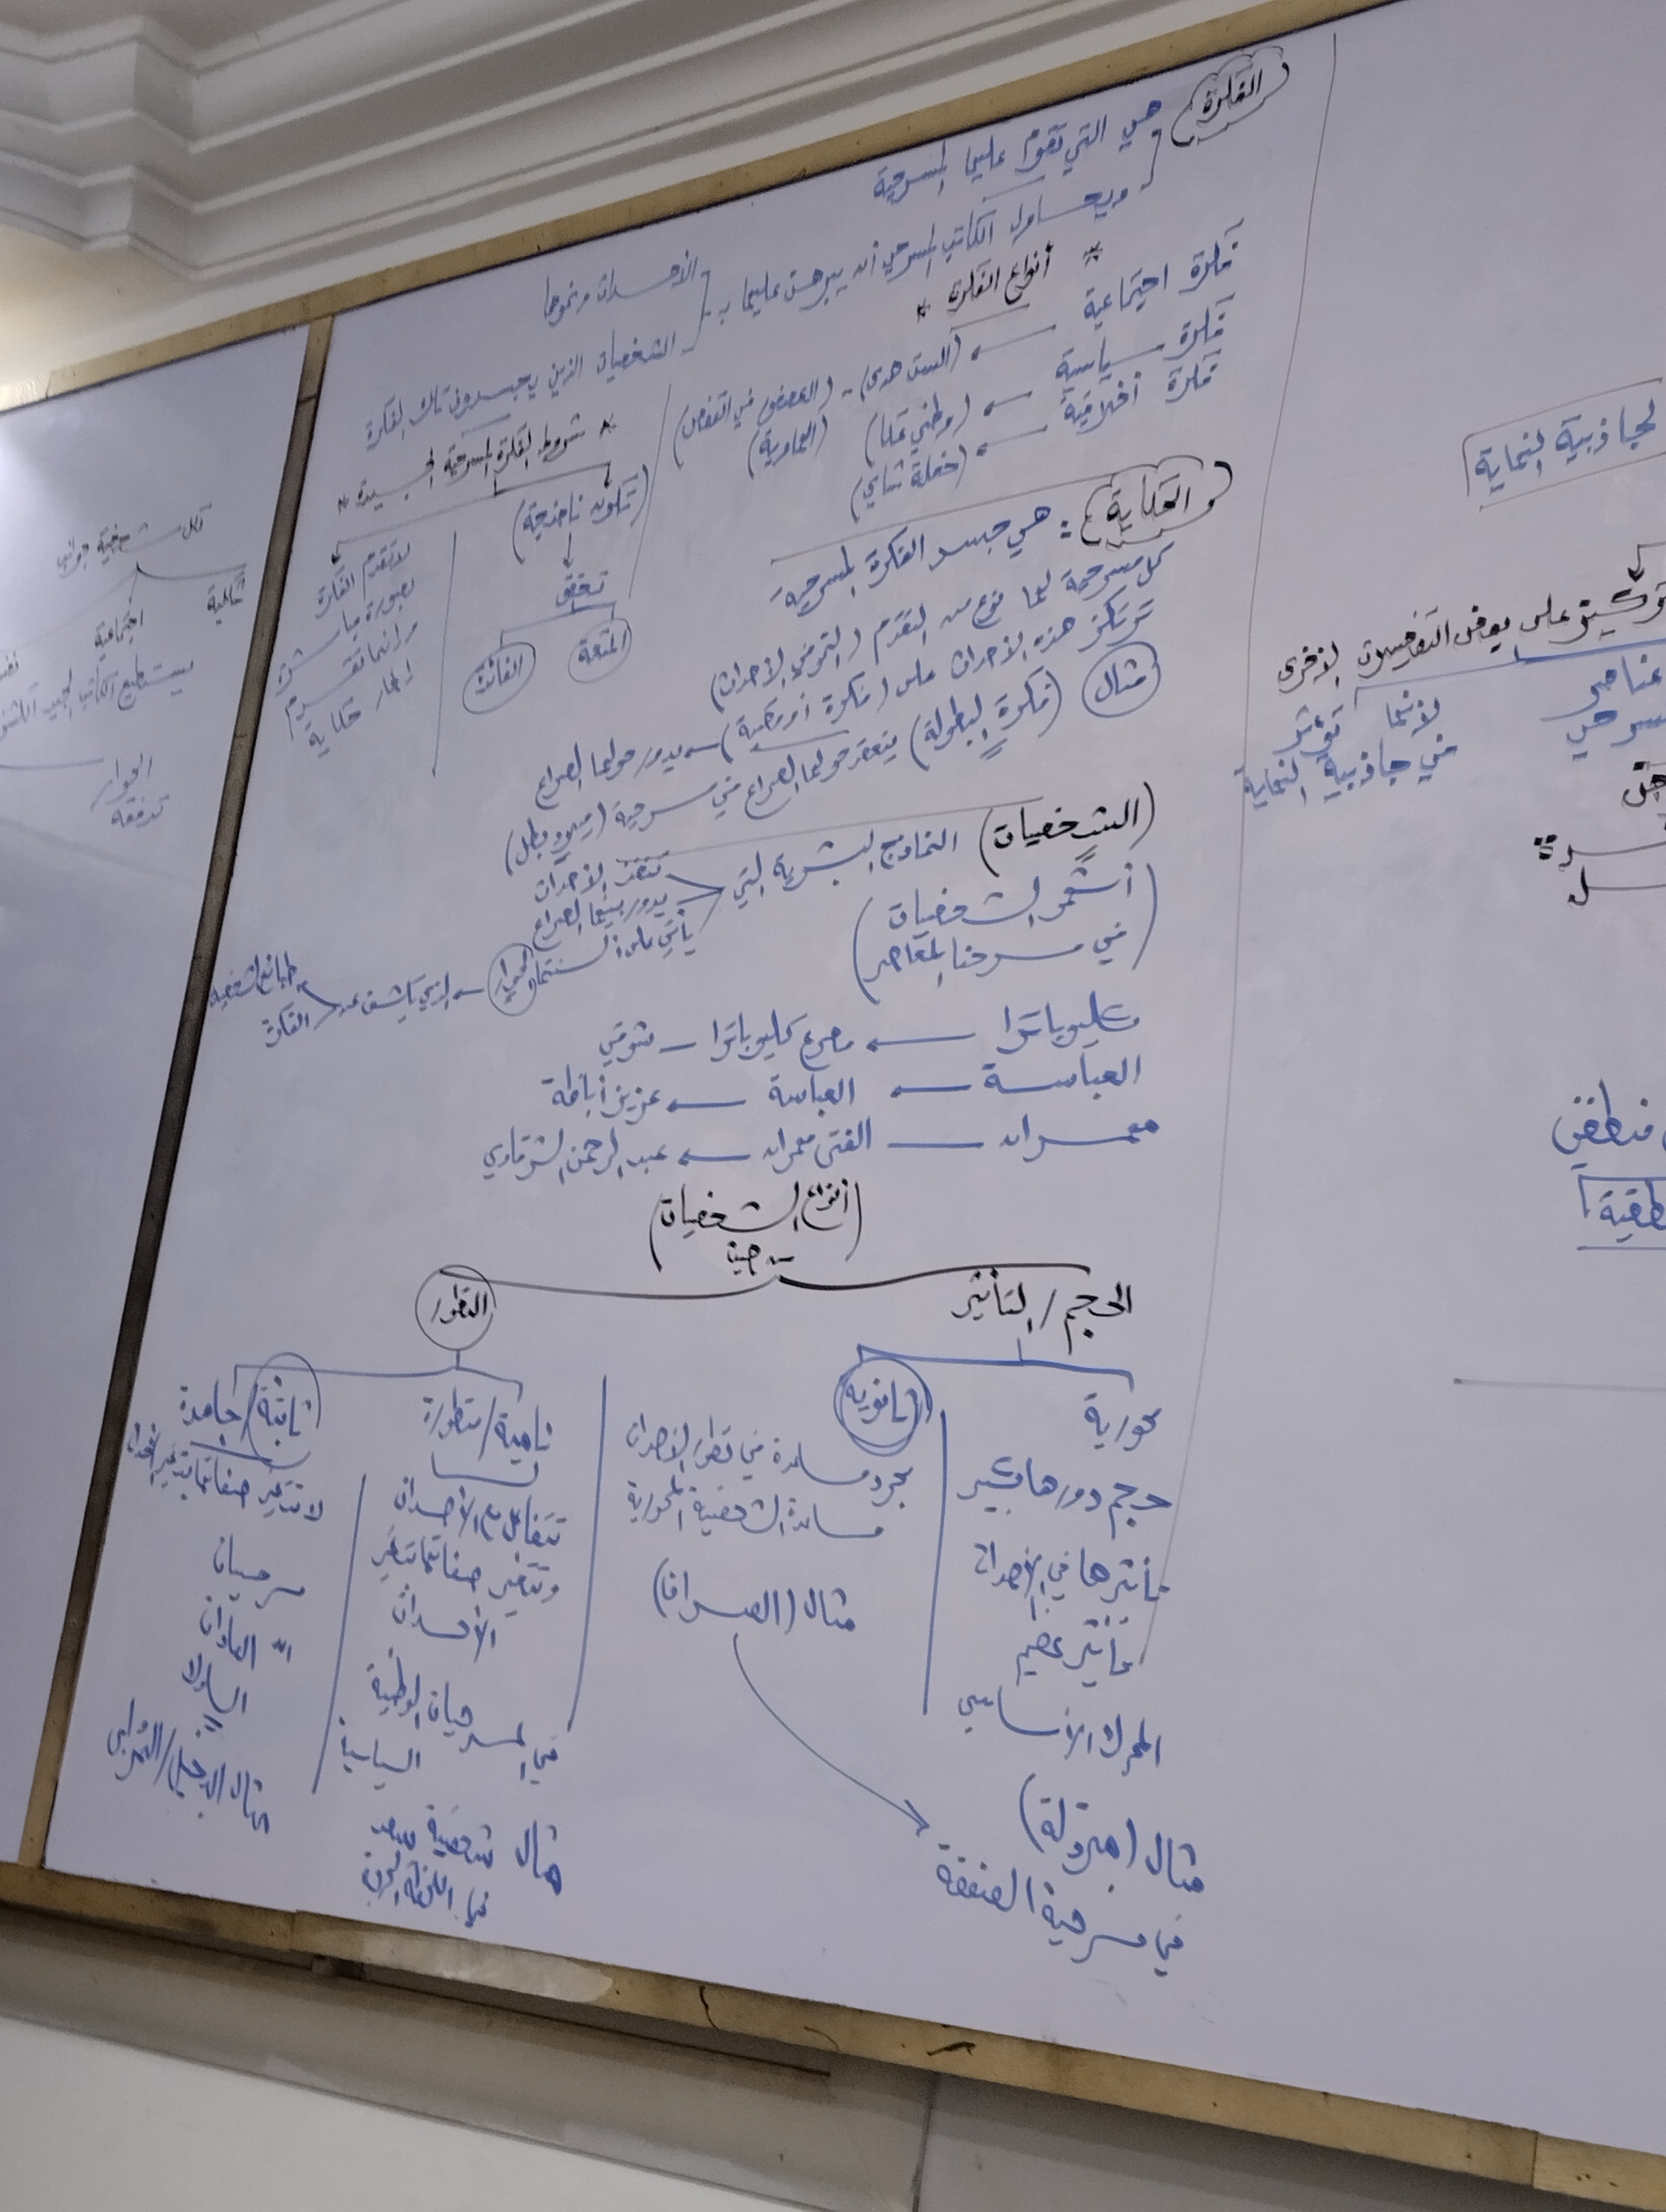 الفكرة
هي التي تقوم عليها المسرحية
ويحاول الكاتب المسرحي أن يبرهن عليها بـ
الأحداث ونموها
الشخصيات الذين يجسدون تلك الفكرة
* أنواع الفكرة *
فكرة اجتماعية ← (الست هدى) - (العصفور في القفص)
فكرة سياسية ← (وطني عكا)
فكرة أخلاقية ← (حفلة شاي)
* شروط الفكرة المسرحية الجيدة *
(تكون ناضجة)
تحقق
المتعة
الفائدة
لا تقدم الفكرة
بصورة مباشرة
وإنما تقدم
إطار حكاية
الحكاية : هي جسد الفكرة المسرحية
كل مسرحية لها نوع من التقدم والنمو في الأحداث
ترتكز هذه الأحداث على (فكرة أو قضية) ← يدور حولها الصراع
مثال (فكرة البطولة) ينعقد حولها الصراع في مسرحية (ميلاد بطل)
(الشخصيات) النماذج البشرية التي
تنفذ الأحداث
يدور بينها الصراع
يأتي على ألسنتها الحوار ← الذي يكشف عن
طبائع الشخصية
الفكرة
(أشهر الشخصيات
في مسرحنا المعاصر)
كليوباترا ← مصرع كليوباترا – شوقي
العباسة ← العباسة ← عزيز أباظة
مهران — الفتى مهران ← عبد الرحمن الشرقاوي
(أنواع الشخصيات)
من حيث
الحجم / التأثير
التطور
محورية
حجم دورها كبير
تأثيرها في الأحداث
تأثير عظيم
المحرك الأساسي
مثال (مبروكة)
في مسرحية الصفقة
ثانوية
مجرد مساعدة في تطور الأحداث
مساندة الشخصية المحورية
مثال (الصراف)
نامية / متطورة
تتفاعل مع الأحداث
وتتغير صفاتها بتغير
الأحداث
في المسرحيات الوطنية
السياسية
مثال شخصية سعد
في اللحظة الحرجة
ثابتة / جامدة
لا تتغير صفاتها بتغير الأحداث
مسرحيات
العادات
السلوك
مثال البخيل /
لكل شخصية جوانب
اجتماعية
يستطيع الكاتب الجيد
الحوار
تدفقه
لجاذبية النهاية
على بعض التفصيلات الأخرى
لأنها تؤثر
في جاذبية النهاية
عناصر
منطقي